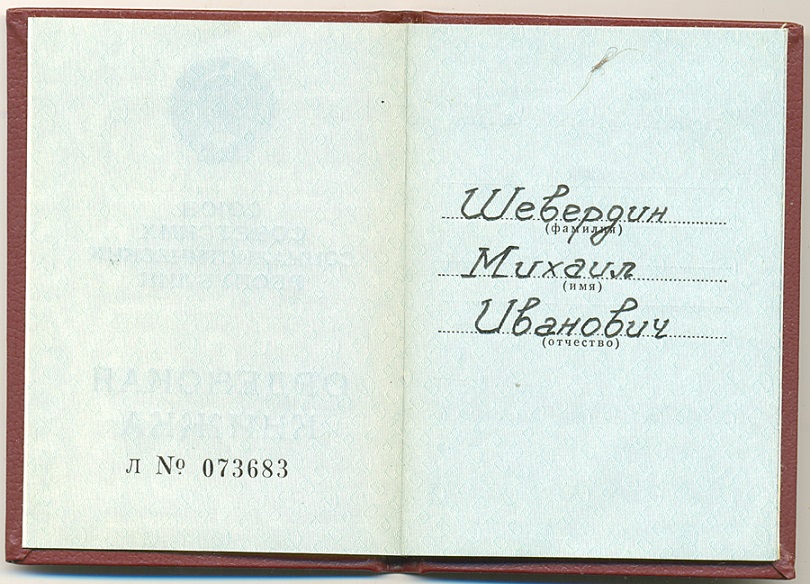 л № 073683
Шевердин
(фамилия)
Михаил
(имя)
Иванович
(отчество)